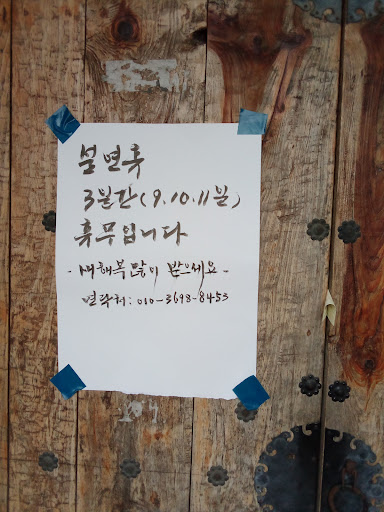 설연휴
3일간(9.10.11일)
휴무입니다
- 새해복 많이 받으세요 -
연락처: 010-3698-8453